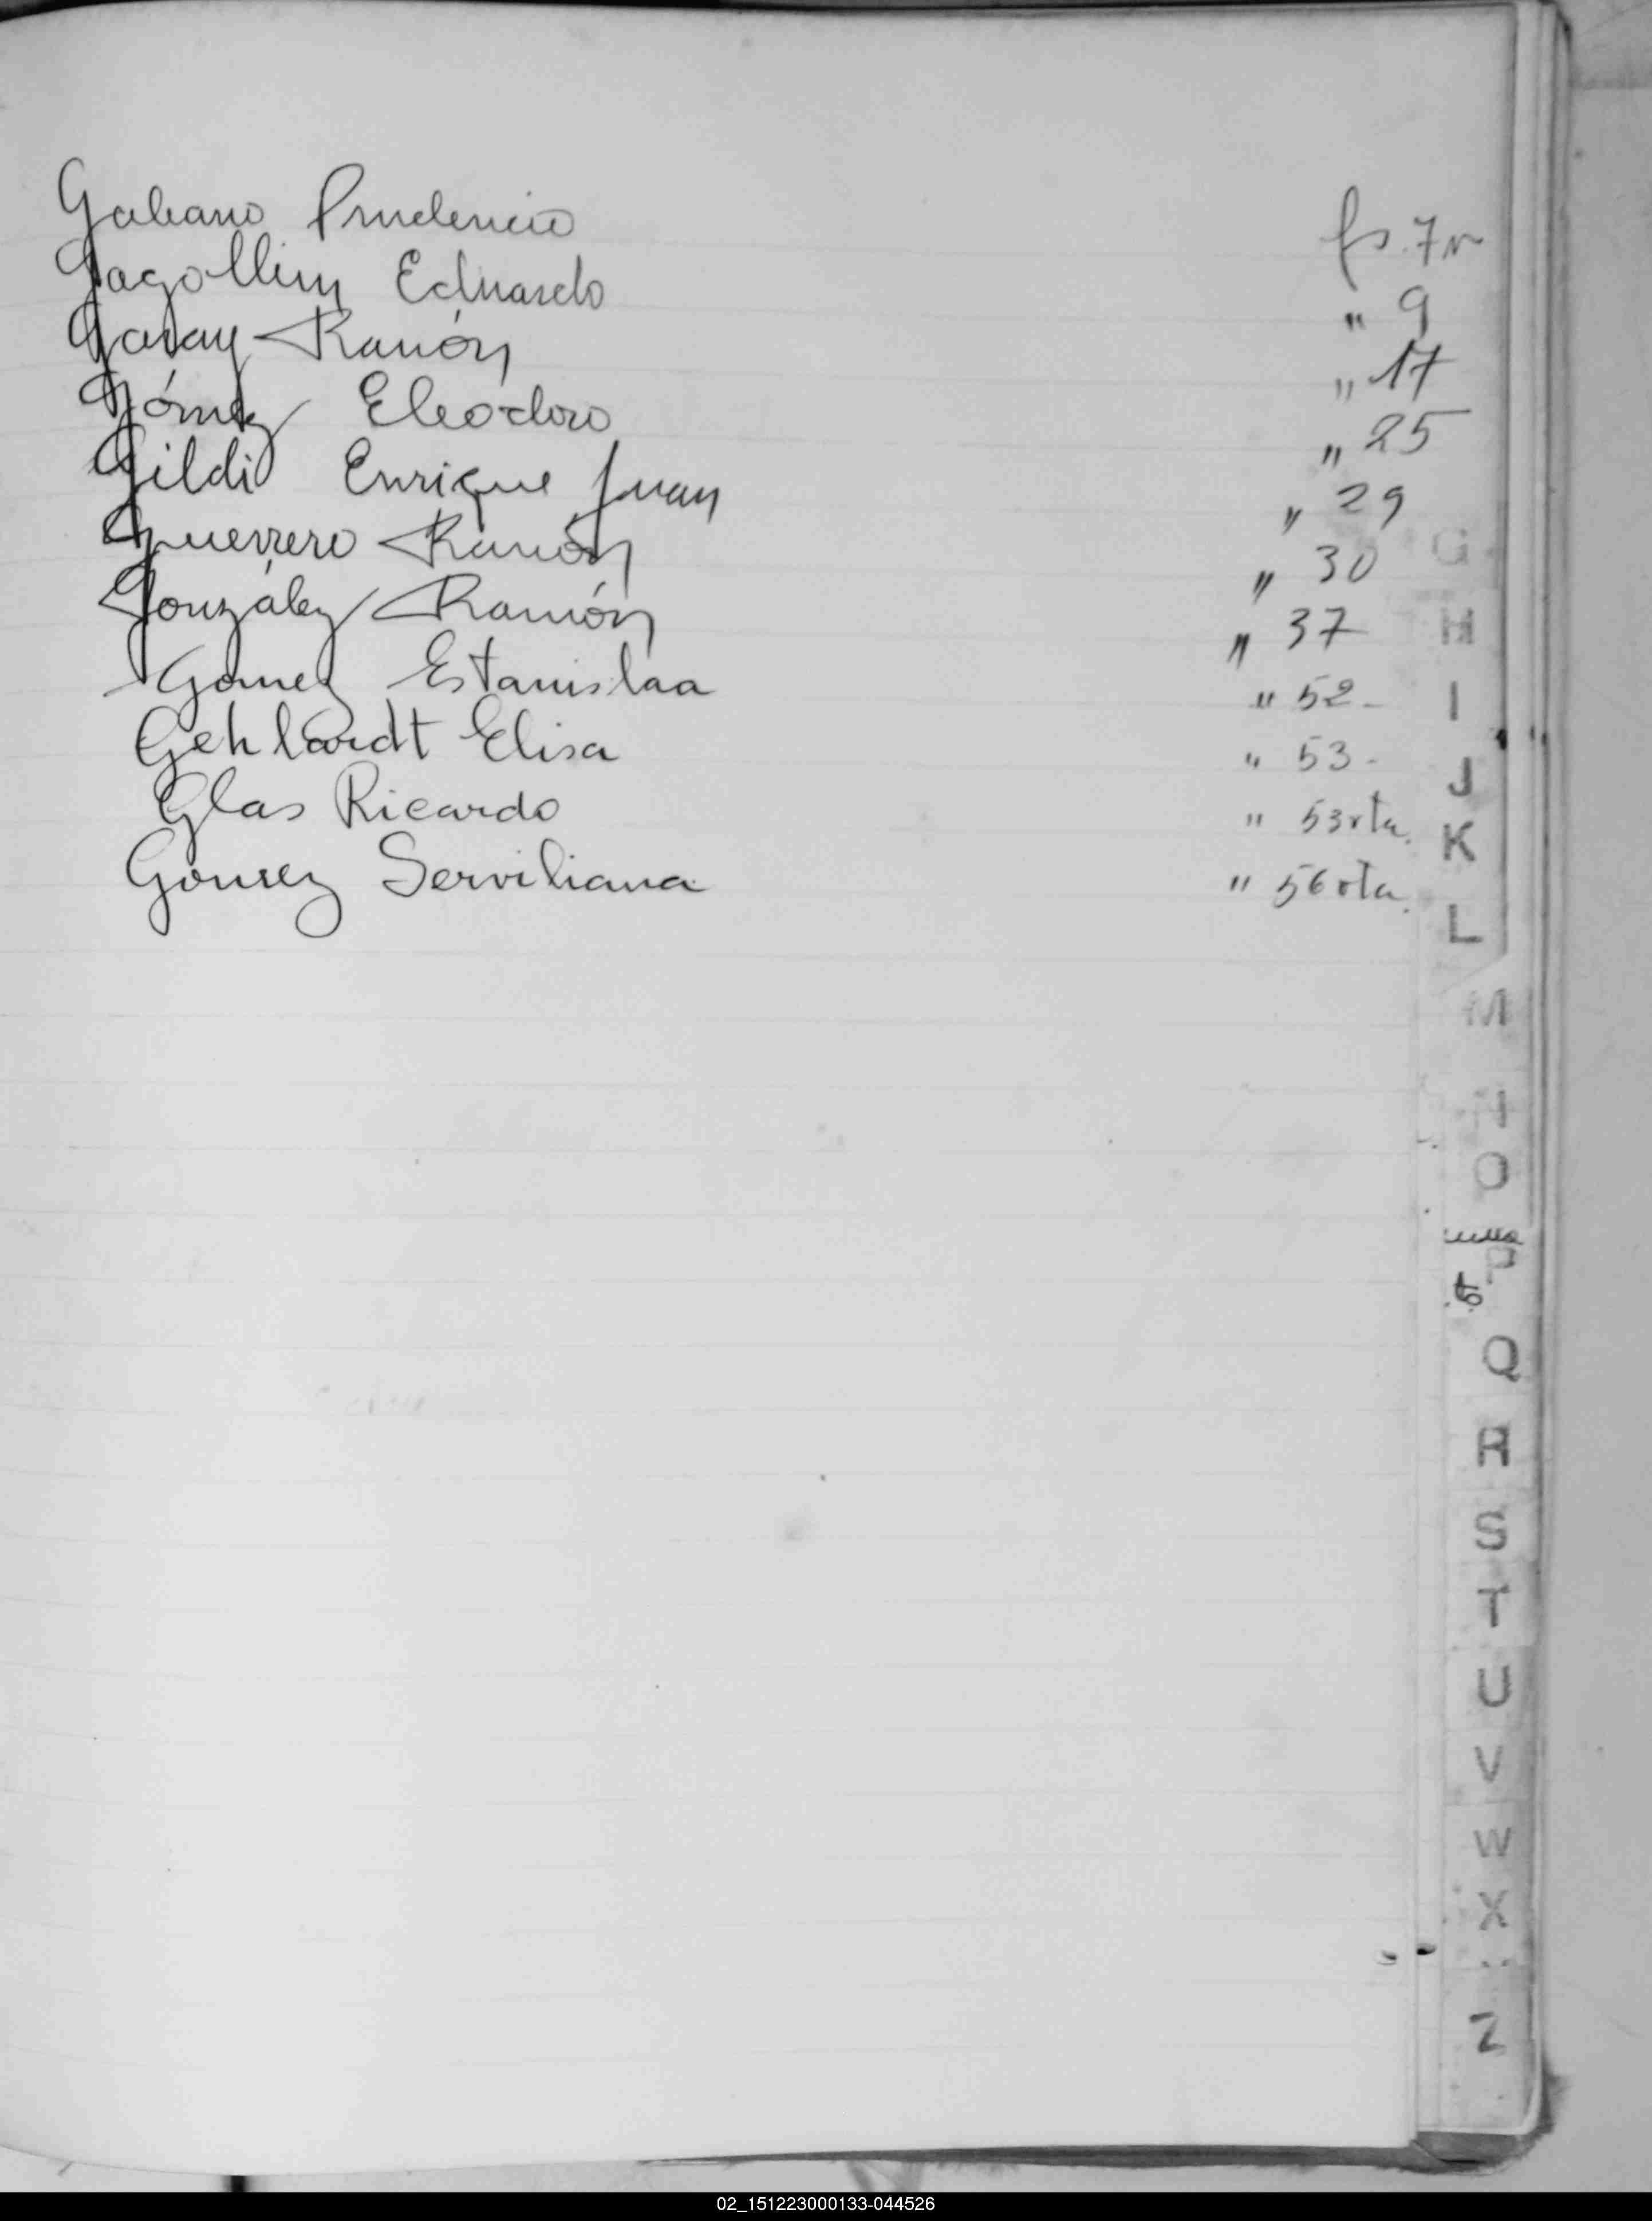 Galeano Prudencio fs. 7v
Gagolliny Eduardo " 9
Garay Ramón " 17
Gómez Eleodoro " 25
Gildi Enrique Juan " 29
Guerrero Ramón " 30
González Ramón " 37
Gomez Estanislaa " 52-
Gehhardt Elisa " 53-
Glas Ricardo " 53vta.
Gomez Serviliana " 56vta.
G
H
I
J
K
L
M
N
O
P
Q
R
S
T
U
V
W
X
Z
02_151223000133-044526